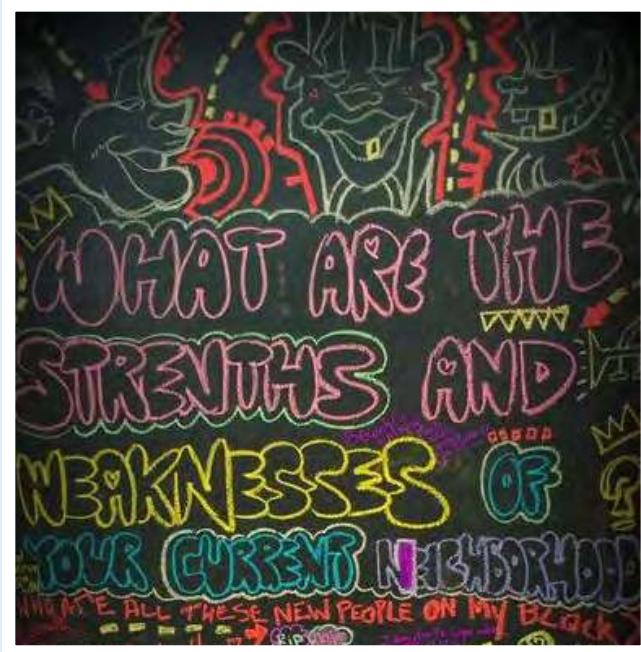 WHAT ARE THE
STRENTHS AND
WEAKNESSES OF
YOUR CURRENT NEIGHBORHOOD
WHO ARE ALL THESE NEW PEOPLE ON MY BLOCK?
RIP